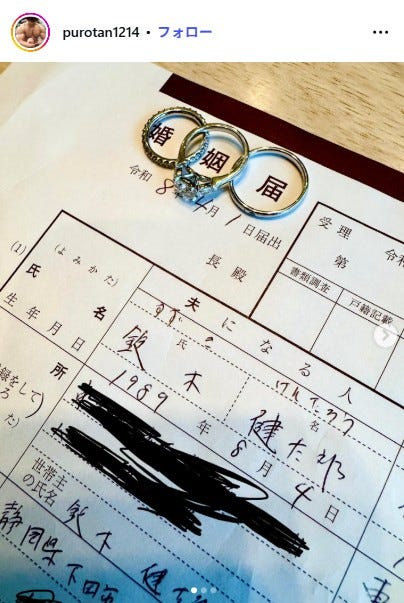 purotan1214 • フォロー
婚姻届
令和 8年4月1日届出
長殿
受理 令和
第
書類調査 戸籍記載
(1)
夫になる人
(よみかた) すずき けんたろう
氏名 氏 鈴木 名 健太郎
生年月日 1989年8月4日
所
録をして
ろ
た)
世帯主
の氏名 鈴木 健太郎
静岡県下田市